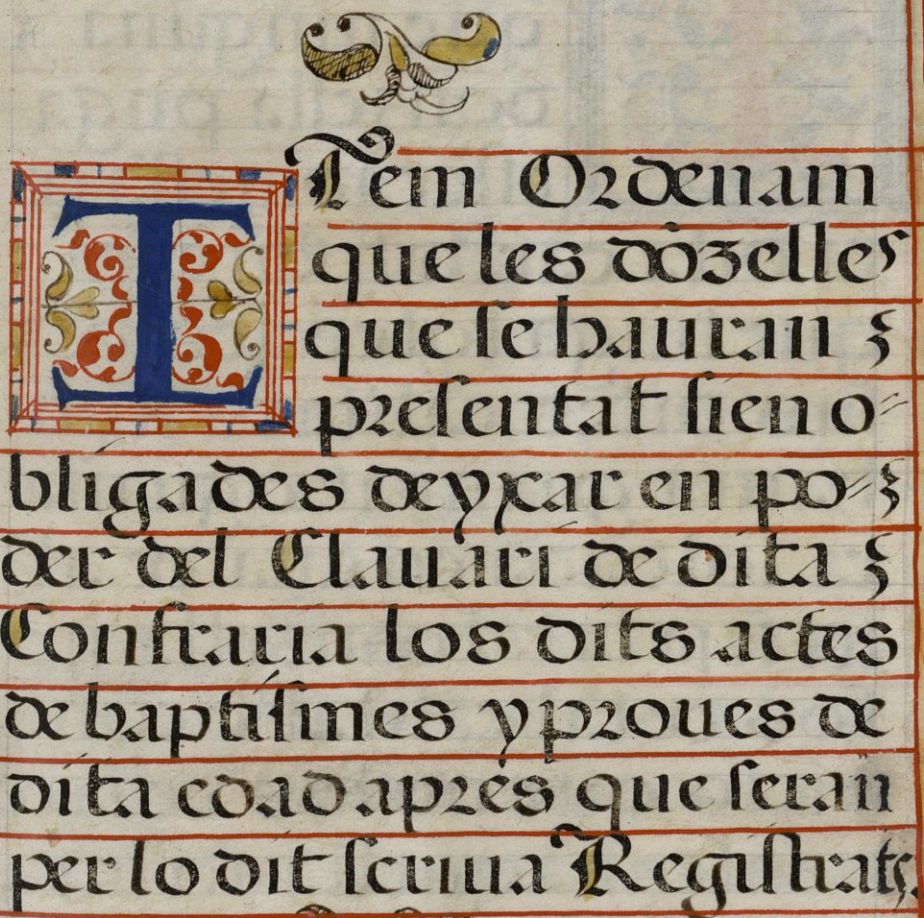 ITem Ordenam
que les dõzelles
que se hauran
presentat sien o=
bligades deyxar en po=
der del Clauari de dita
Confraria los dits actes
de baptismes y proues de
dita edad apres que seran
per lo dit scriua Registrats,